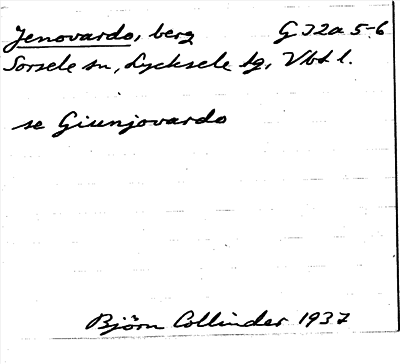 Jenovardo, berg G 32a 5-6
Sorsele sn, Lycksele lg, Vbtl.
se Giunjovardo
Björn Collinder 1937